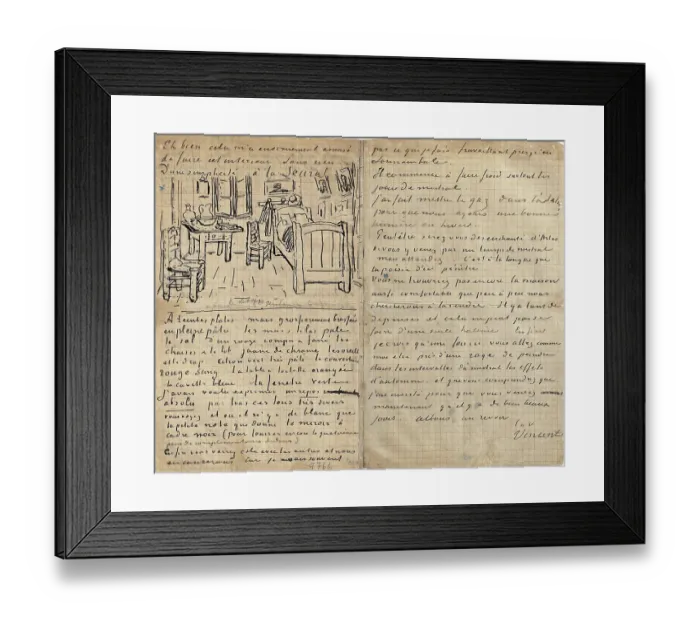 Eh bien cela m'a enormement amusé
de faire cet interieur Sans rien
D'une simplicité à la Seurat
A teintes plates mais grossierement brossées
en pleine pâte les murs lilas pale
le sol d'un rouge rompu & fané les
chaises & le lit jaune de chrome, les oreillers
et le drap citron vert très pâle la couverture
rouge sang la table à toilette orangée
la cuvette bleue la fenêtre verte
J'avais voulu exprimer un repos
absolu par tous ces tons très divers
vous voyez et où il n'y a de blanc que
la petite note que donne le miroir à
cadre noir (pour fourrer encore la quatrieme
paire de complementaires dedans)
Enfin vous verrez cela avec les autres et nous
en causerons car je ne sais souvent
pas ce que je fais travaillant presqu'en
somnambule.
Il commence à faire froid surtout les
jours de mistral
J'ai fait mettre le gaz dans l'atelier
pour que nous ayons une bonne
lumière en hiver.
Peutêtre serez vous desenchanté d'Arles
si vous y venez par un temps de mistral
mais attendez C'est à la longue que
la poésie d'ici pénètre
Vous ne trouverez pas encore la maison
aussi comfortable que peu à peu nous
chercherons à la rendre. Il y a tant de
depenses et cela ne peut pas se
faire d'une seule haleine. Enfin
je crois qu'une fois ici vous allez comme
moi être pris d'une rage de peindre
dans les intervalles du mistral les effets
d'automne et que vous comprendrez que
j'ai insisté pour que vous venez
maintenant qu'il y a de bien beaux
jours. allons, au revoir
t. à v.
Vincent